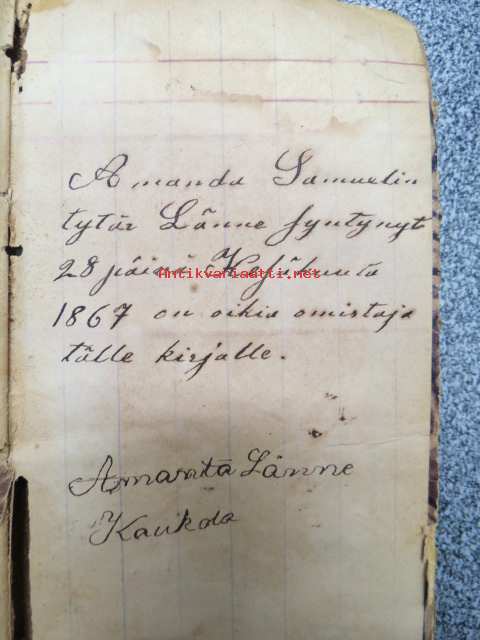 Amanda Samuelin
tytär Länne syntynyt
28 päivä Kesäkuuta
1867 on oikia omistaja
tälle kirjalle.
Antikvariaatti.net
Amanta Länne
Kaukola